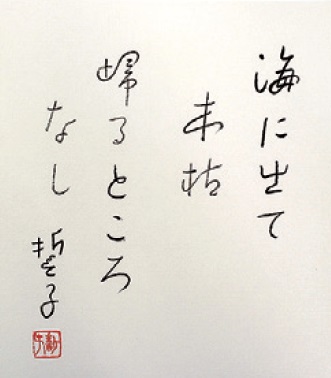 海に出て
木枯
帰るところ
なし 誓子